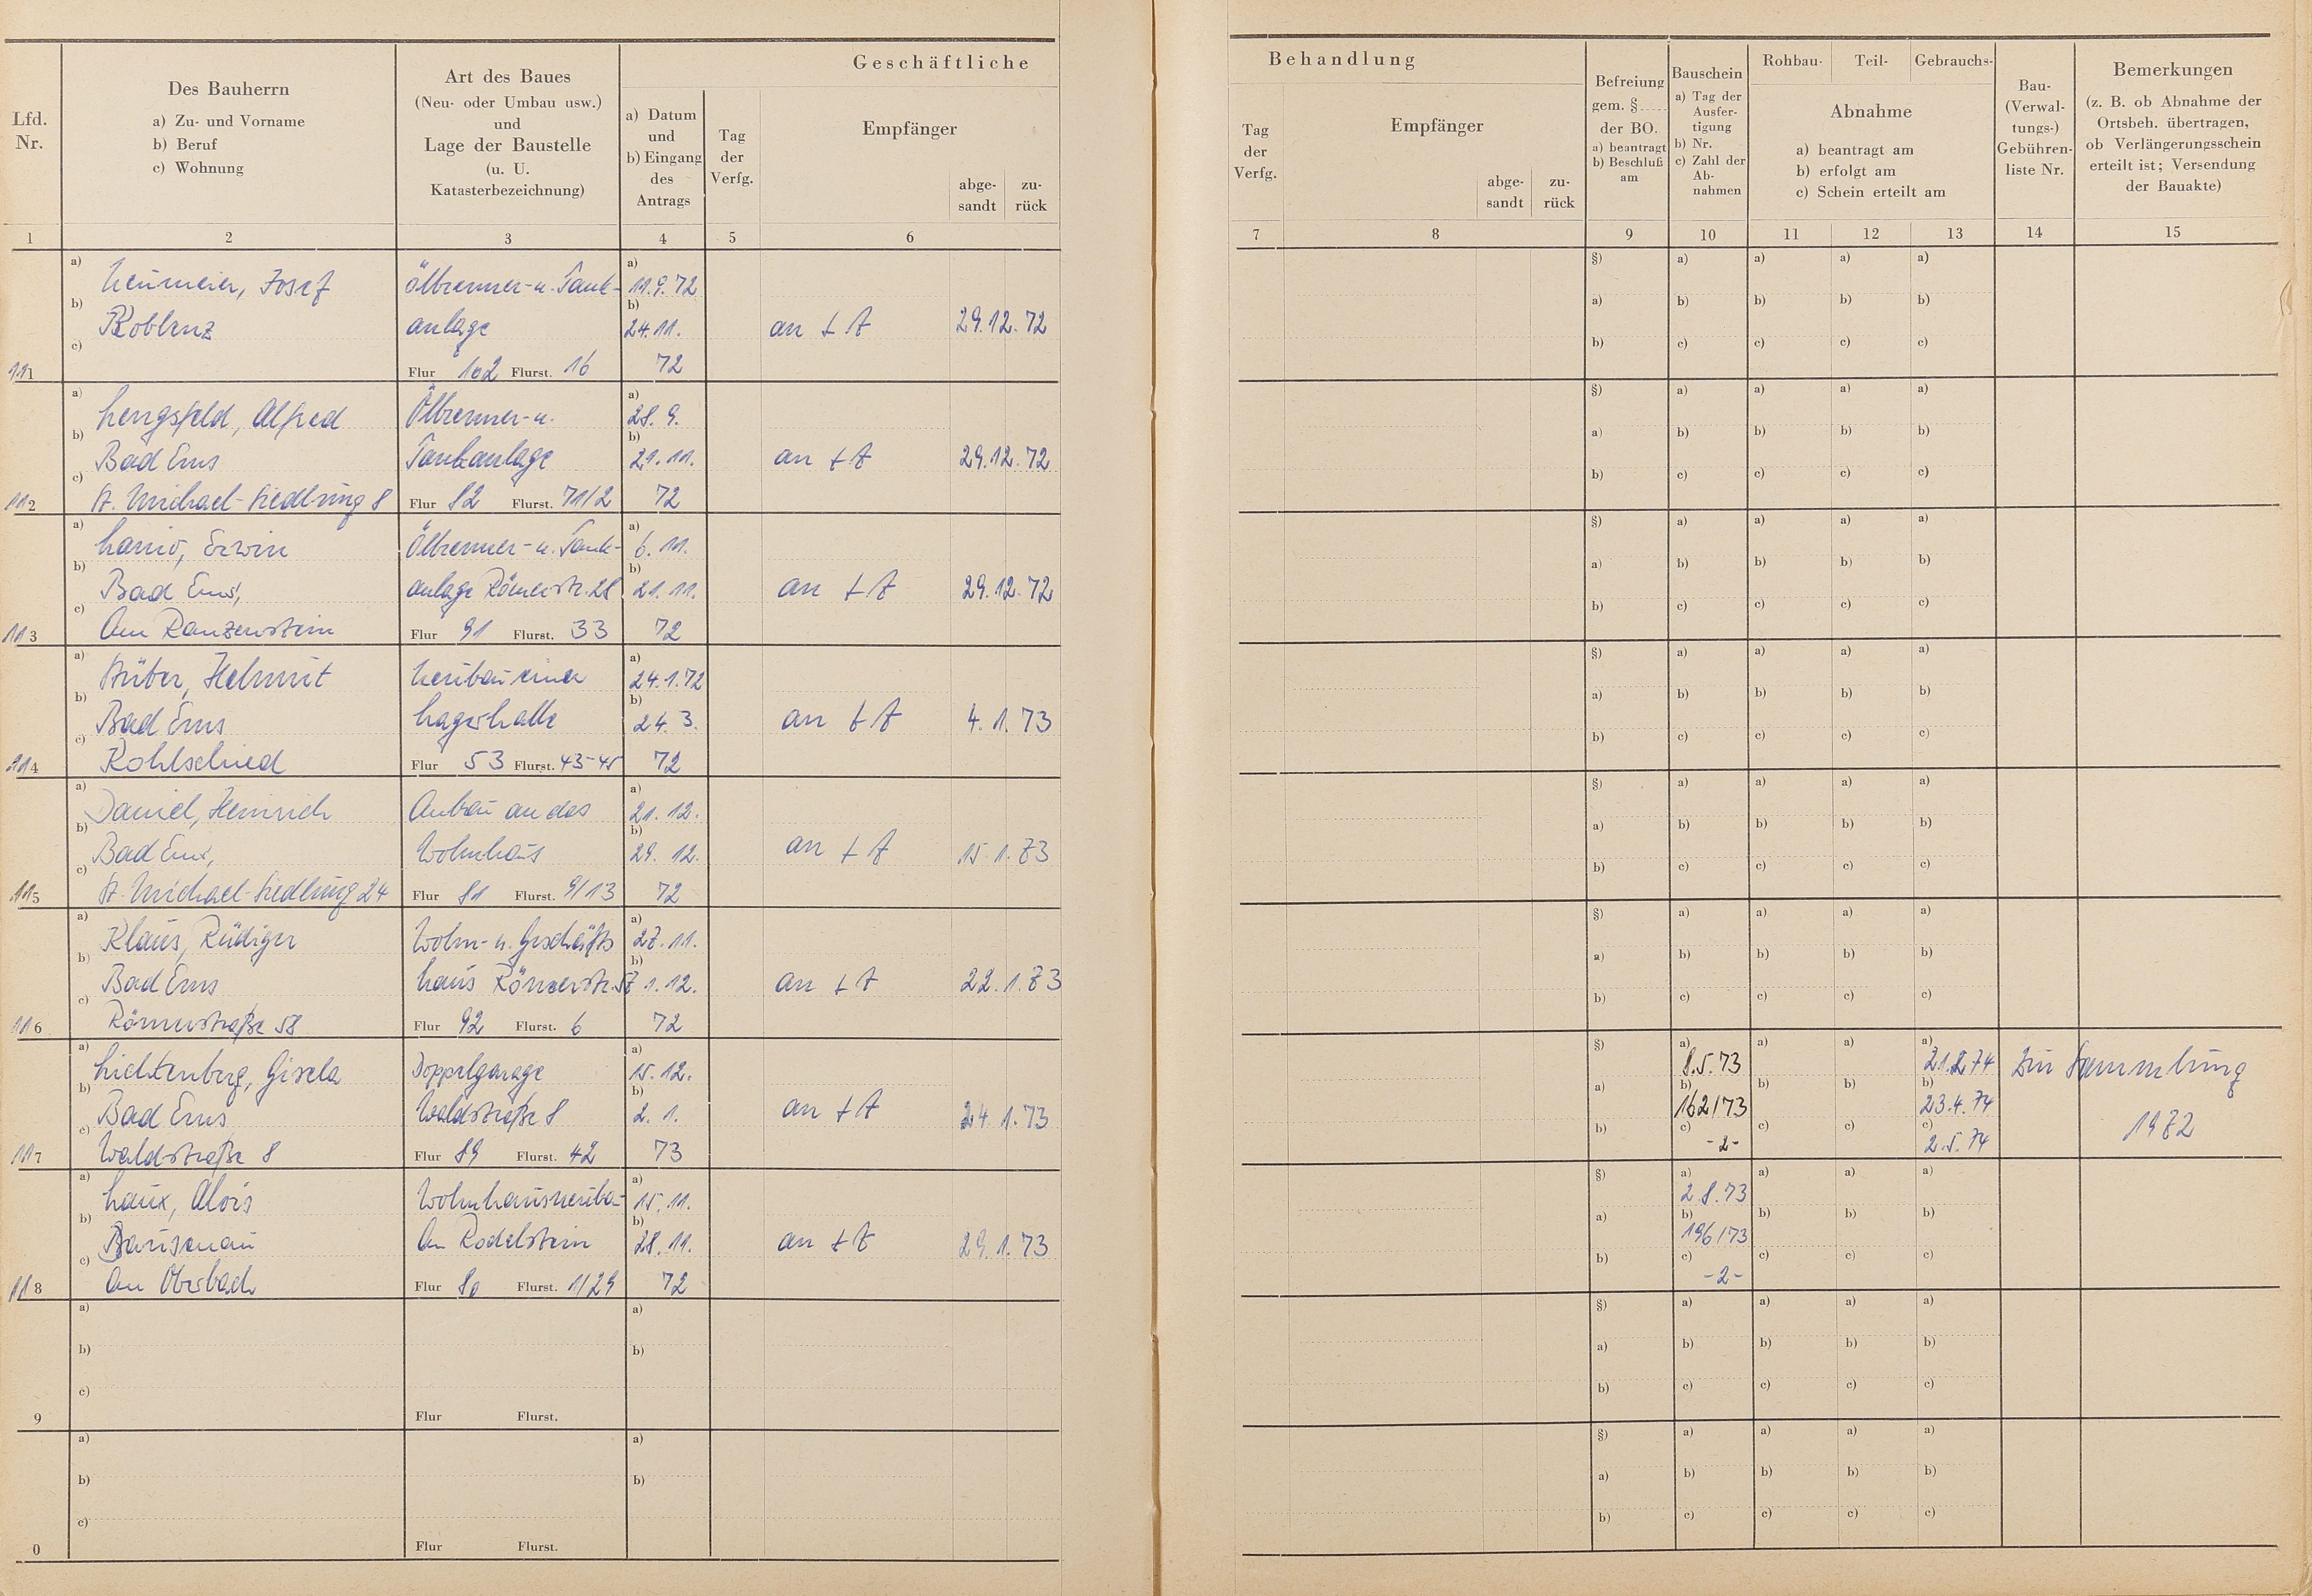 Geschäftliche
Behandlung
Lfd. Nr.
Des Bauherrn
a) Zu- und Vorname
b) Beruf
c) Wohnung
Art des Baues
(Neu- oder Umbau usw.)
und
Lage der Baustelle
(u. U.
Katasterbezeichnung)
a) Datum
und
b) Eingang
des
Antrags
Tag
der
Verfg.
Empfänger
abge-
sandt
zu-
rück
Tag
der
Verfg.
Empfänger
abge-
sandt
zu-
rück
Befreiung
gem. §
der BO.
a) beantragt
b) Beschluß
am
Bauschein
a) Tag der
Ausfer-
tigung
b) Nr.
c) Zahl der
Ab-
nahmen
Rohbau-
Teil-
Gebrauchs-
Abnahme
a) beantragt am
b) erfolgt am
c) Schein erteilt am
Bau-
(Verwal-
tungs-)
Gebühren-
liste Nr.
Bemerkungen
(z. B. ob Abnahme der
Ortsbeh. übertragen,
ob Verlängerungsschein
erteilt ist; Versendung
der Bauakte)
1 2 3 4 5 6 7 8 9 10 11 12 13 14 15
a) Neumeier, Josef Ölbrenner- u. Tank- a) 11.9.72 §) a) a) a) a)
b) Koblenz anlage b) 24.11. an 29.12.72 a) b) b) b) b)
c) b) c) c) c) c)
111 Flur 102 Flurst. 16 72
a) Lengsfeld, Alfred Ölbrenner- u. a) 28. 9. §) a) a) a) a)
b) Bad Ems Tankanlage b) 21.11. an 29.12.72 a) b) b) b) b)
c) b) c) c) c) c)
112 St. Michael-Siedlung 8 Flur 82 Flurst. 71/2 72
a) Erwin Ölbrenner- u. Tank- a) 6. 11. §) a) a) a) a)
b) Bad Ems, anlage Römerstr. 28 b) 21. 11. an 29.12.72 a) b) b) b) b)
c) b) c) c) c) c)
113 Am Flur 91 Flurst. 33 72
a) Stüber, Helmut Neubau einer a) 24.1.72 §) a) a) a) a)
b) Bad Ems Lagerhalle b) 24. 3. an 4. 1. 73 a) b) b) b) b)
c) b) c) c) c) c)
114 Kohlschied Flur 53 Flurst. 43-45 72
a) Daniel, Heinrich Anbau an das a) 21. 12. §) a) a) a) a)
b) Bad Ems, Wohnhaus b) 29. 12. an 15. 1. 73 a) b) b) b) b)
c) b) c) c) c) c)
115 St. Michael-Siedlung 24 Flur 81 Flurst. 9/13 72
a) Klaus, Rüdiger Wohn- u. Geschäfts a) 27. 11. §) a) a) a) a)
b) Bad Ems haus Römerstr. 57 b) 1. 12. an 22.1.73 a) b) b) b) b)
c) b) c) c) c) c)
116 Römerstraße 58 Flur 92 Flurst. 6 72
a) Lichtenberg, Gisela Doppelgarage a) 15. 12. §) a) 8.5.73 a) a) a) 21.2.74 Zur Sammlung
b) Bad Ems Waldstraße 8 b) 2. 1. an 24.1.73 a) b) 162/73 b) b) b) 23.4.74 1982
c) b) c) -2- c) c) c) 2.5.74
117 Waldstraße 8 Flur 89 Flurst. 42 73
a) Laux, Alois Wohnhausneubau a) 15. 11. §) a) 2.8.73 a) a) a)
b) Dausenau b) 28. 11. an 29.1.73 a) b) 196/73 b) b) b)
c) b) c) -2- c) c) c)
118 Am Oberbach Flur 80 Flurst. 1/29 72
a) a) §) a) a) a) a)
b) b) a) b) b) b) b)
c) b) c) c) c) c)
9 Flur Flurst.
a) a) §) a) a) a) a)
b) b) a) b) b) b) b)
c) b) c) c) c) c)
0 Flur Flurst.